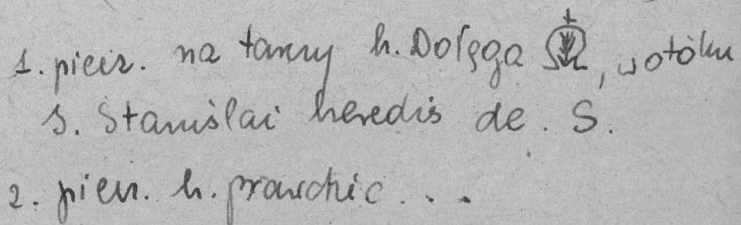 1. piecz. na tarczy h. Dołęga, w otoku
S. Stanislai heredis de . S.
2. piecz. h. prawdzic . . .